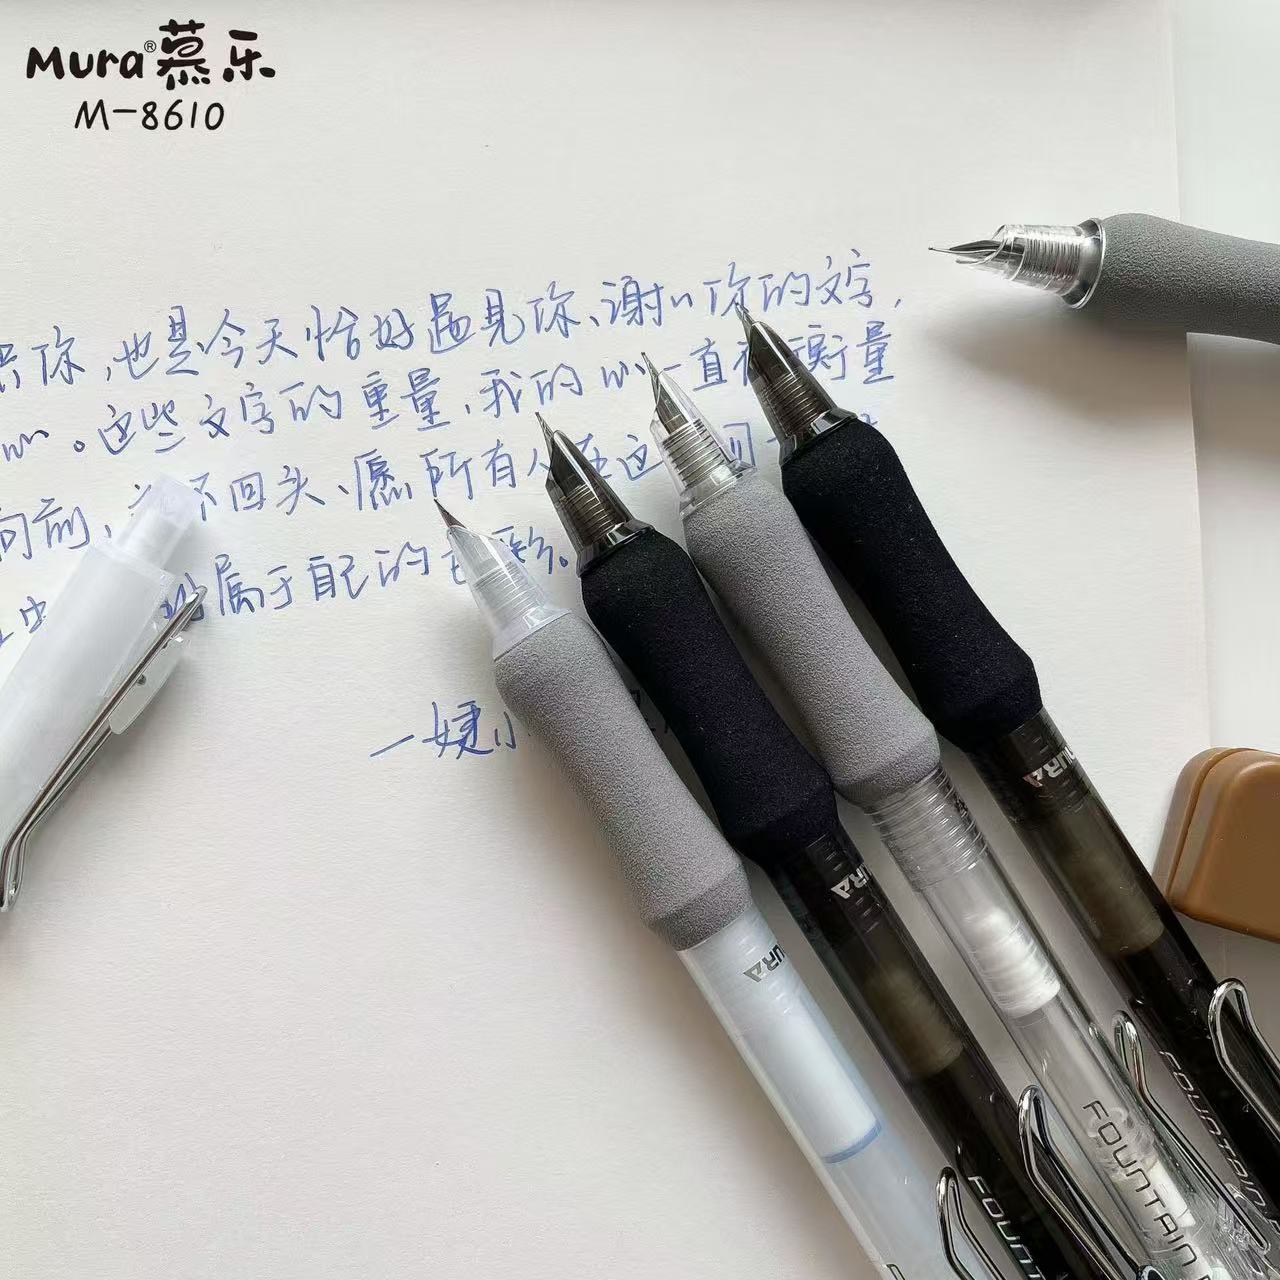 Mura®慕乐
M-8610
你,也是今天恰好遇见你、谢你的文字,
。这些文字的重量,我的心一直在衡量
向前,不回头、愿所有人在这回
属于自己的彩。
一婕小
MURA
URA
MURA
URA
FOUNTAIN
FOUNTAIN
FOUNT